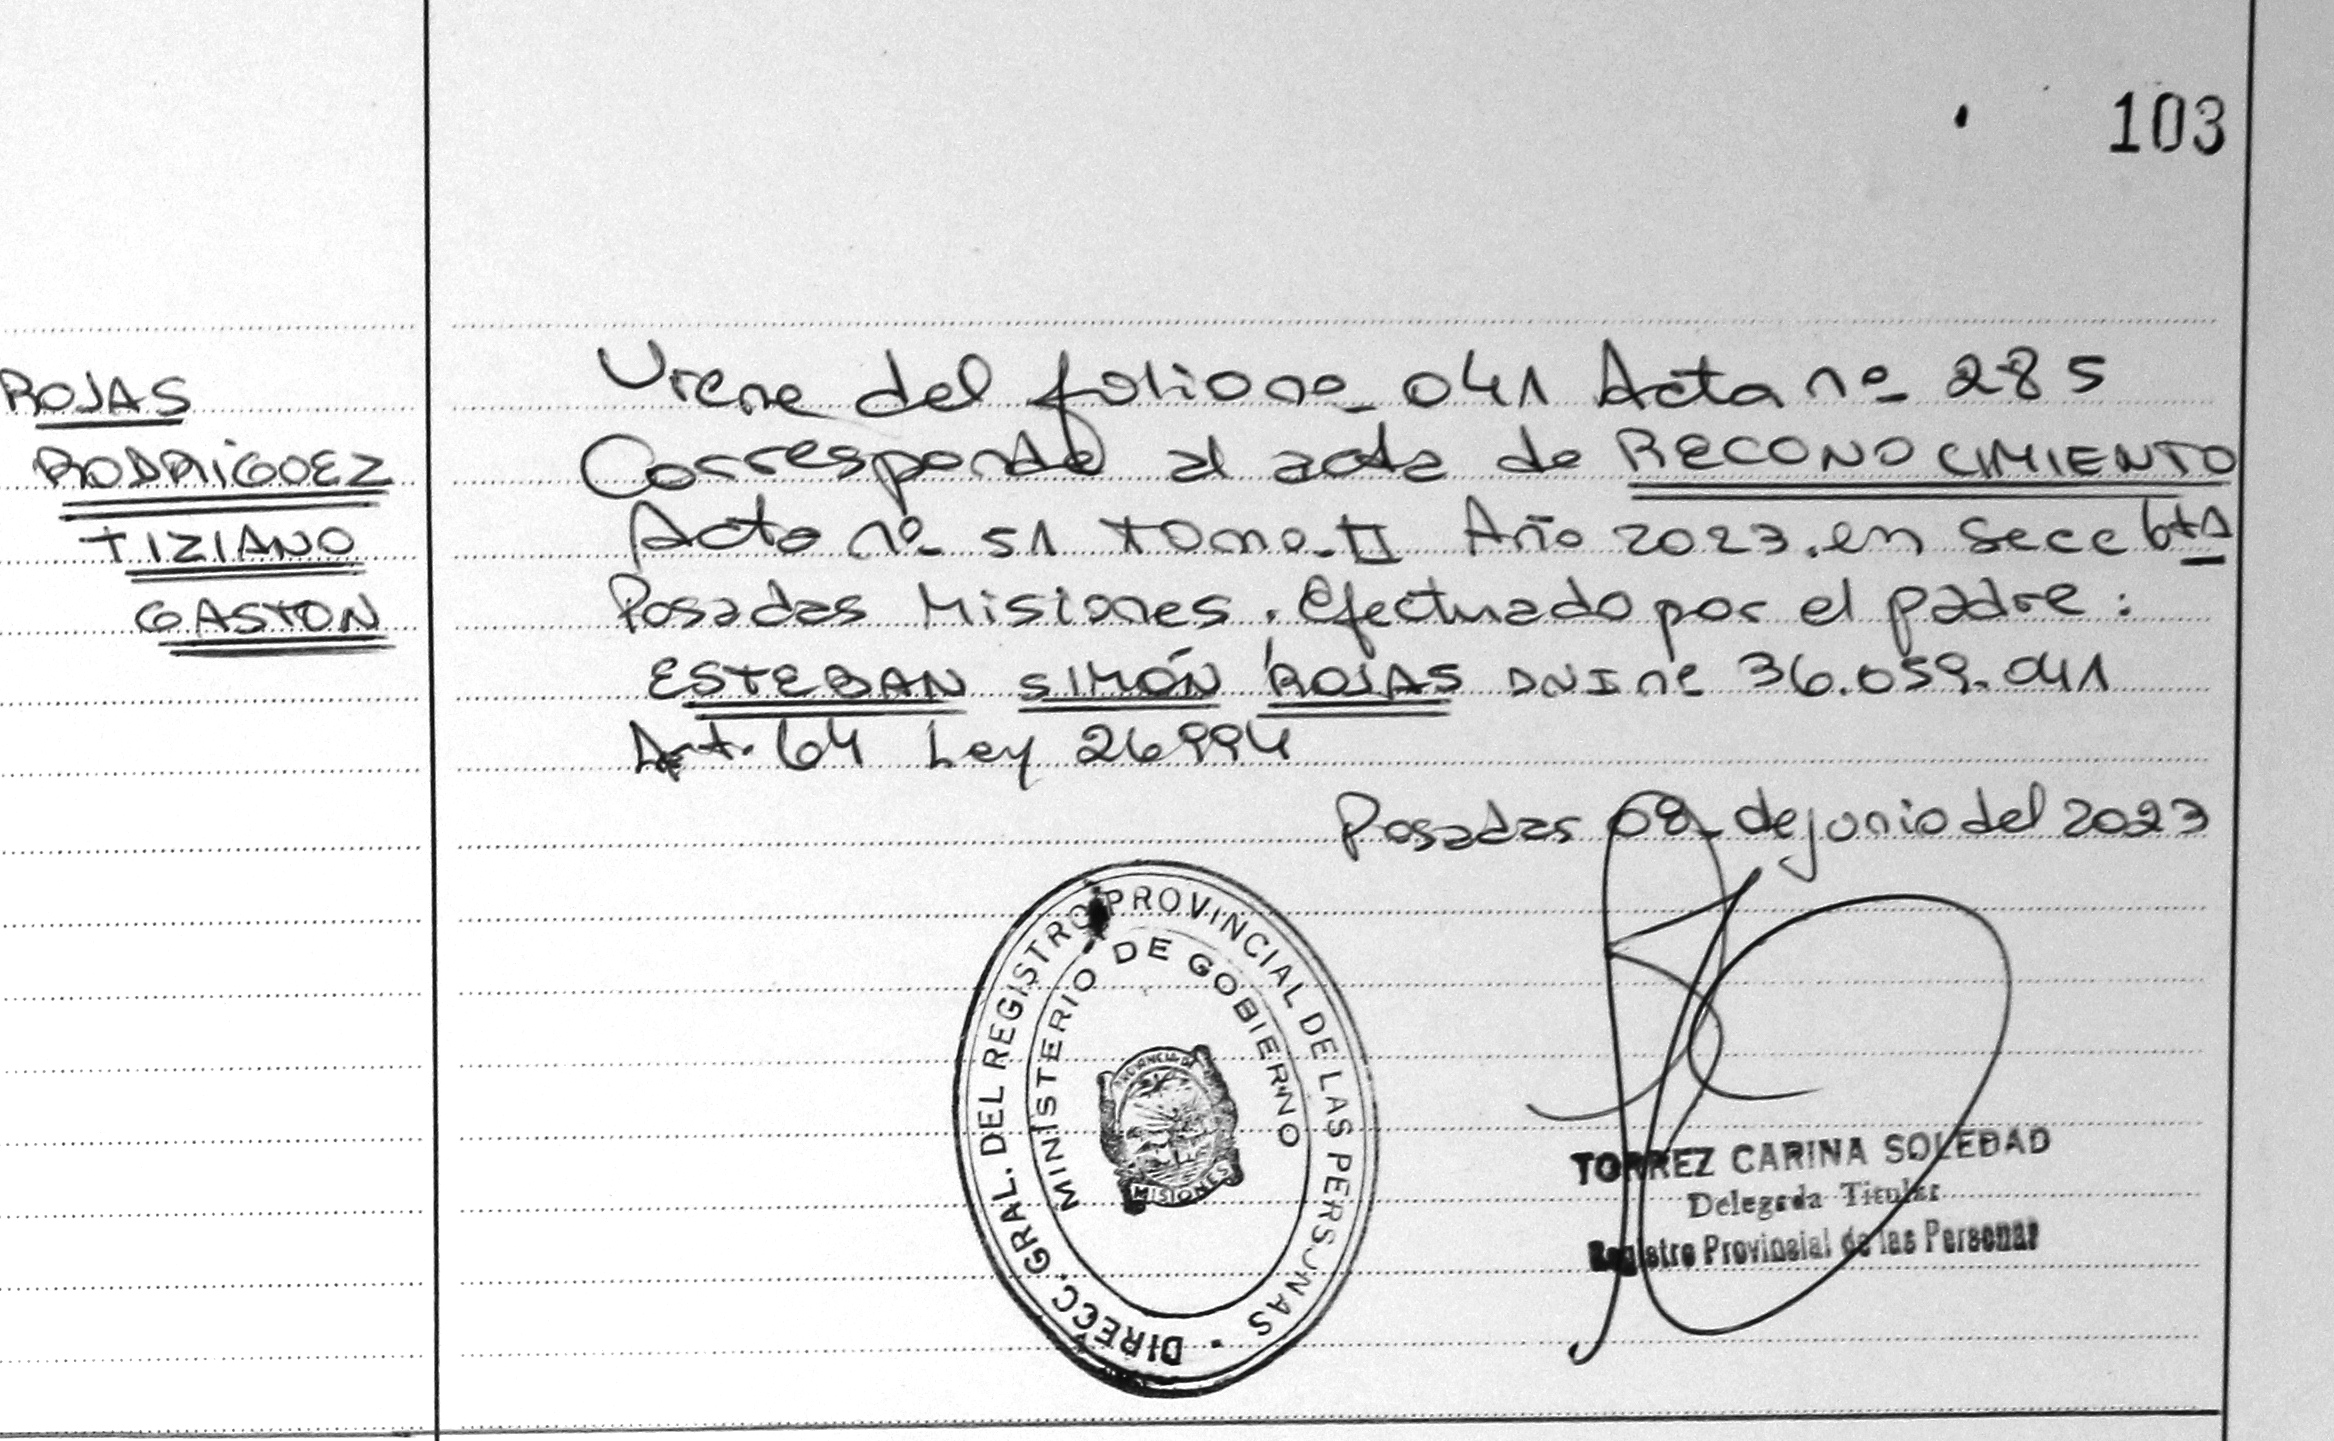 103
ROJAS
RODRIGUEZ
TIZIANO
GASTON
Viene del folio nº 041 Acta nº 285
Corresponde al acta de RECONOCIMIENTO
Acta nº 51 Tomo II Año 2023. en Secc 6ta
Posadas Misiones. Efectuado por el padre:
ESTEBAN SIMÓN ROJAS DNI nº 36.059.041
Art. 64 Ley 26994
Posadas 08 de junio del 2023
DIRECC. GRAL. DEL REGISTRO PROVINCIAL DE LAS PERSONAS
MINISTERIO DE GOBIERNO
PROVINCIA DE
MISIONES
TORREZ CARINA SOLEDAD
Delegada Titular
Registro Provincial de las Personas